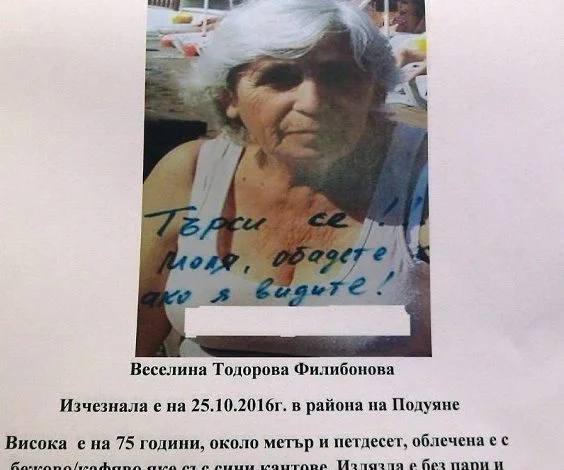 Търси се!!
Моля, обадете
ако я видите!
Веселина Тодорова Филибонова
Изчезнала е на 25.10.2016г. в района на Подуяне
Висока е на 75 години, около метър и петдесет, облечена е с
бежово/кафяво яке със сини кантове. Излязла е без пари и